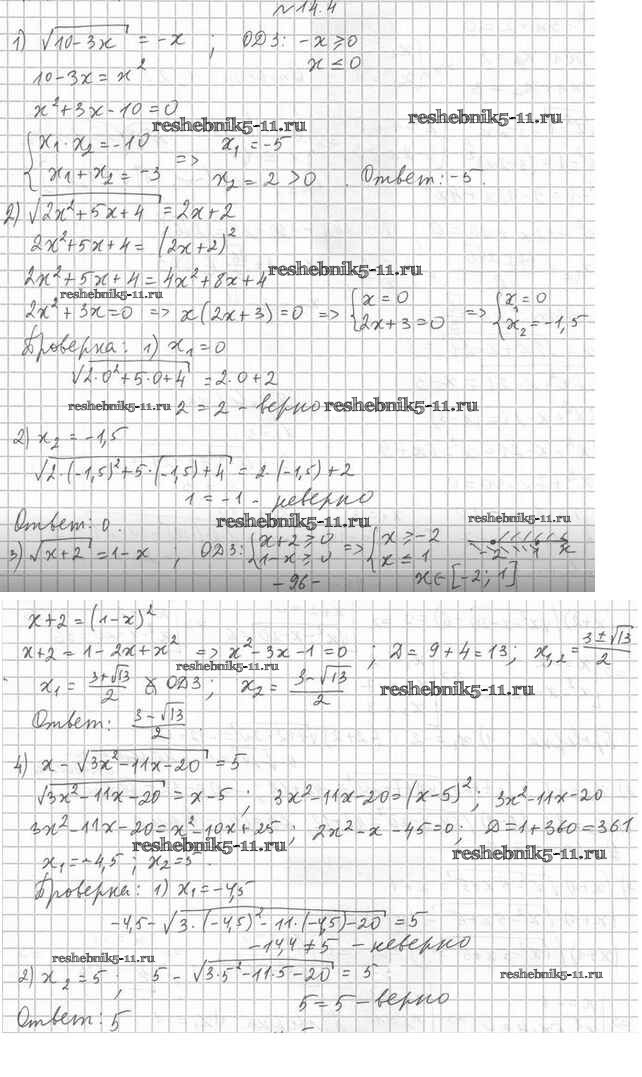 №14.4
1) √10-3x = -x ; ОДЗ: -x ≥ 0
x ≤ 0
10-3x = x²
x²+3x-10=0
reshebnik5-11.ru reshebnik5-11.ru
{x₁·x₂=-10 => x₁=-5
x₁+x₂=-3 x₂=2>0. Ответ: -5.
2) √2x²+5x+4 = 2x+2
2x²+5x+4=(2x+2)²
reshebnik5-11.ru
2x²+5x+4=4x²+8x+4
reshebnik5-11.ru
2x²+3x=0 => x(2x+3)=0 => {x=0 2x+3=0 => {x=0 x₂=-1,5
Проверка: 1) x₁=0
√2·0²+5·0+4 = 2·0+2
reshebnik5-11.ru 2=2 - верно reshebnik5-11.ru
2) x₂=-1,5
√2·(-1,5)²+5·(-1,5)+4 = 2·(-1,5)+2
1=-1 - неверно
Ответ: 0. reshebnik5-11.ru reshebnik5-11.ru
3) √x+2 = 1-x ; ОДЗ: {x+2≥0 1-x≥0 => {x≥-2 x≤1 -2 1 x
-96- x∈[-2; 1]
x+2=(1-x)²
x+2=1-2x+x² => x²-3x-1=0 ; D=9+4=13; x₁,₂=3±√13/2
reshebnik5-11.ru
x₁=3+√13/2 ∉ ОДЗ; x₂=3-√13/2 reshebnik5-11.ru
Ответ: 3-√13/2.
4) x-√3x²-11x-20 = 5
√3x²-11x-20 = x-5 ; 3x²-11x-20=(x-5)² ; 3x²-11x-20
3x²-11x-20=x²-10x+25 ; 2x²-x-45=0; D=1+360=361
reshebnik5-11.ru reshebnik5-11.ru
x₁=-4,5 ; x₂=5
Проверка: 1) x₁=-4,5
-4,5-√3·(-4,5)²-11·(-4,5)-20 = 5
-14,4≠5 - неверно
reshebnik5-11.ru
2) x₂=5 ; 5-√3·5²-11·5-20 = 5 reshebnik5-11.ru
5=5 - верно
Ответ: 5